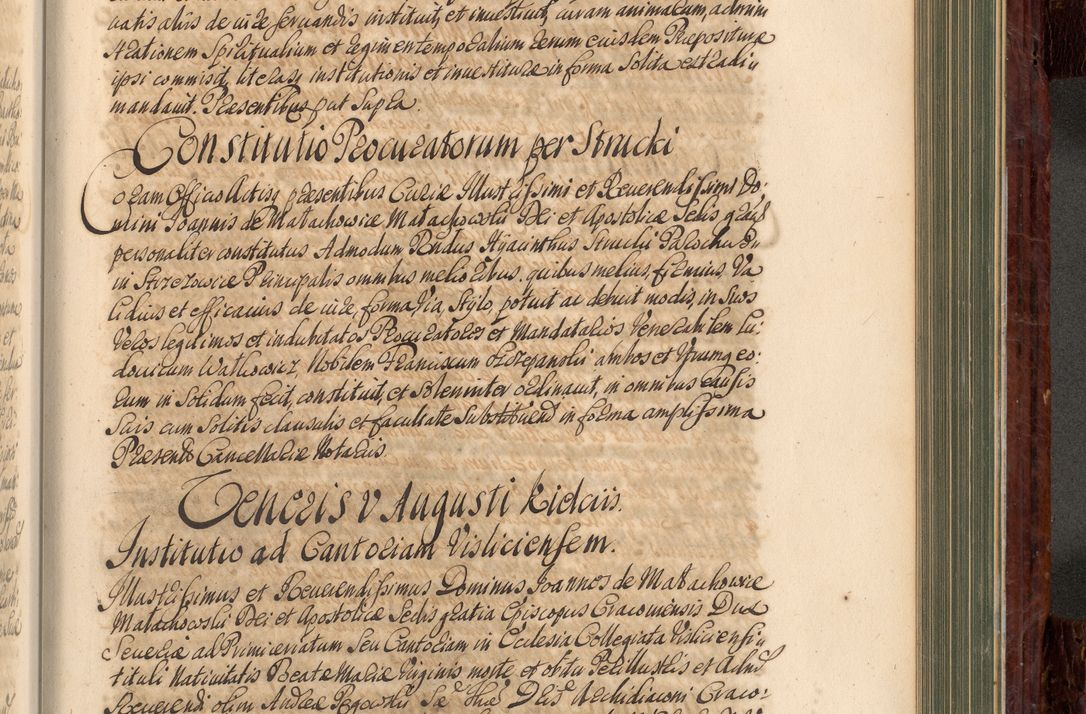 uatis alijs de iure seruandis instituit, et inuestiuit, curam animarum, admini
strationem Spiritualium et regimen temporalium rerum eiusdem Præposituræ
ipsi commisit, literasq institutionis et inuestituræ in forma Solita extradi
mandauit. Præsentibus put Supra.
Constitutio Procuratorum per Strucki
Coram Officio Actisq præsentibus Curiæ Illustrissimi et Reuerendissimi Do-
mini Joannis de Małachowice Małachowski Dei et Apostolicæ Sedis grãa
personaliter constitutus Admodum Rndus Hyacinthus Strucki Parochus
in Strzezowice Principalis omnibus melioribus, quibus melius, firmius, Va
lidius et efficacius de iure, forma, Via, Stylo, potuit ac debuit modis, in Suos
Veros legitimos et indubitatos Procuratores et Mandatarios Venerabilem Lu-
douicum Wathowicz, Nobilem Franciscum Szczepanski ambos et Vtrumq eo-
rum in Solidum fecit, constituit, et Solenniter ordinauit, in omnibus causis
Suis cum Solitis clausulis et facultate Substituend in forma amplissima
Præsente Cancellariæ Notarijs.
Veneris V Augusti Kielciis.
Institutio ad Cantoriam Visliciensem.
Illustrissimus et Reuerendissimus Dominus Joannes de Małachowice
Małachowski Dei et Apostolicæ Sedis gratia Episcopus Cracouiensis Dux
Seueriæ ad Primiceriatum Seu Cantoriam in Ecclesia Collegiata Visliciensi
tituli Natiuitatis Beatæ Mariæ Virginis morte, et obitu Perillustris et Admd
Reuerendi olim Andreæ Pęgowski Archidiaconi Craco-